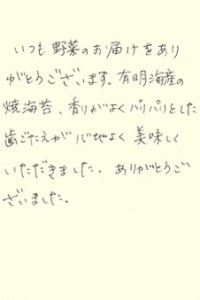 いつも野菜のお届けをあり
がとうございます。有明海産の
焼海苔、香りがよくパリパリとした
歯ごたえが心地よく美味しく
いただきました。ありがとうご
ざいました。